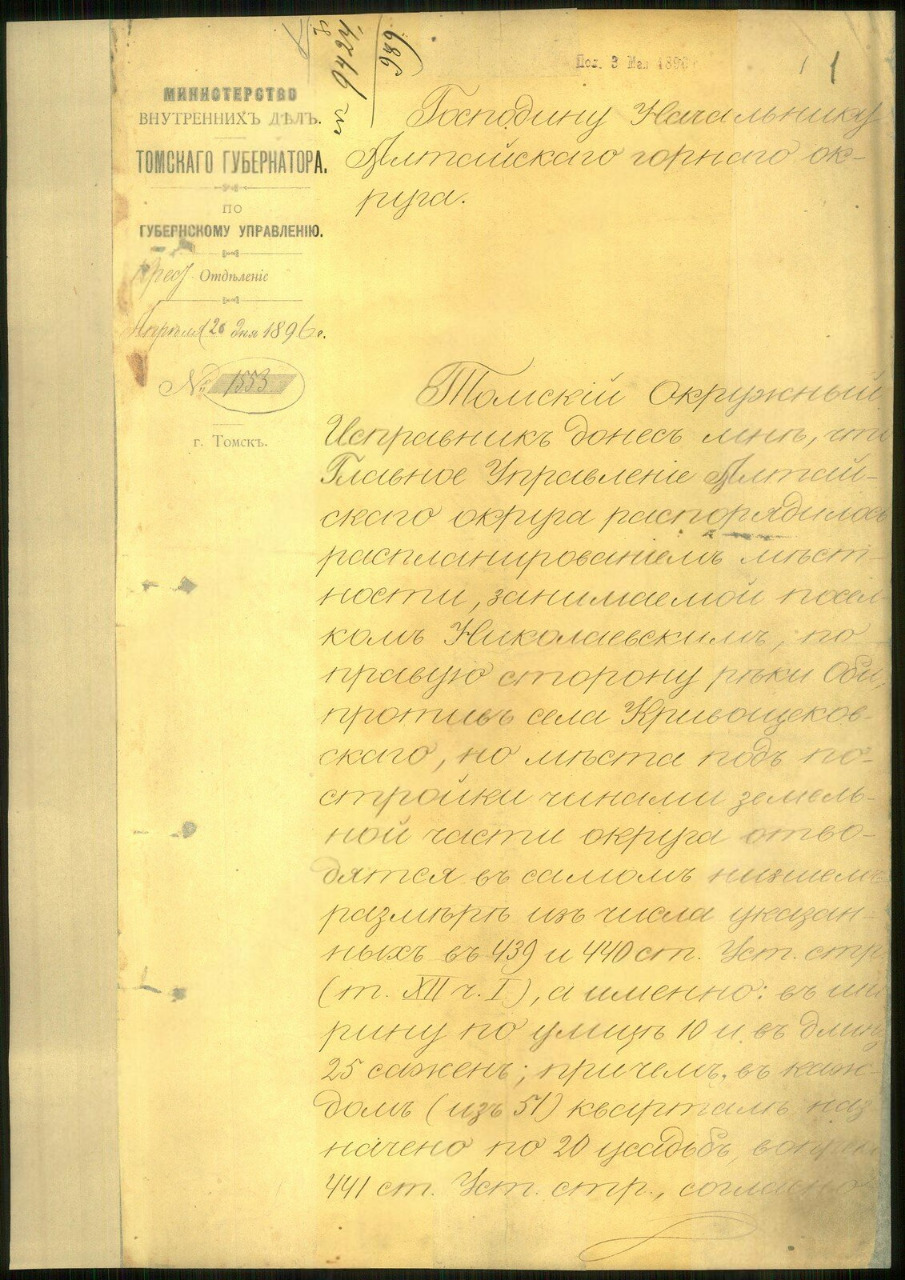 № 9424
989
Пол. 3 Мая 1896
1
МИНИСТЕРСТВО
ВНУТРЕННИХЪ ДѢЛЪ.
ТОМСКАГО ГУБЕРНАТОРА.
ПО
ГУБЕРНСКОМУ УПРАВЛЕНІЮ.
Отдѣленіе
Апрѣля 26 дня 1896 г.
№ 1553
г. Томскъ.
Господину Начальнику
Алтайскаго горнаго ок-
руга.
Томскій Окружный
Исправникъ донесъ мнѣ, что
Главное Управленіе Алтай-
скаго округа распорядилось
распланированіемъ мѣст-
ности, занимаемой посел-
комъ Николаевскимъ, по
правую сторону рѣки Оби,
противъ села Кривощеков-
скаго, но мѣста подъ по-
стройки чинами земель-
ной части округа отво-
дятся въ самомъ низшемъ
размѣрѣ изъ числа указан-
ныхъ въ 439 и 440 ст. Уст. стр.
(т. XII ч. I), а именно: въ ши-
рину по улицѣ 10 и въ длину
25 сажень; причемъ, въ каж-
домъ (изъ 51) кварталѣ наз-
начено по 20 усадьбъ,
441 ст. Уст. стр., согласно